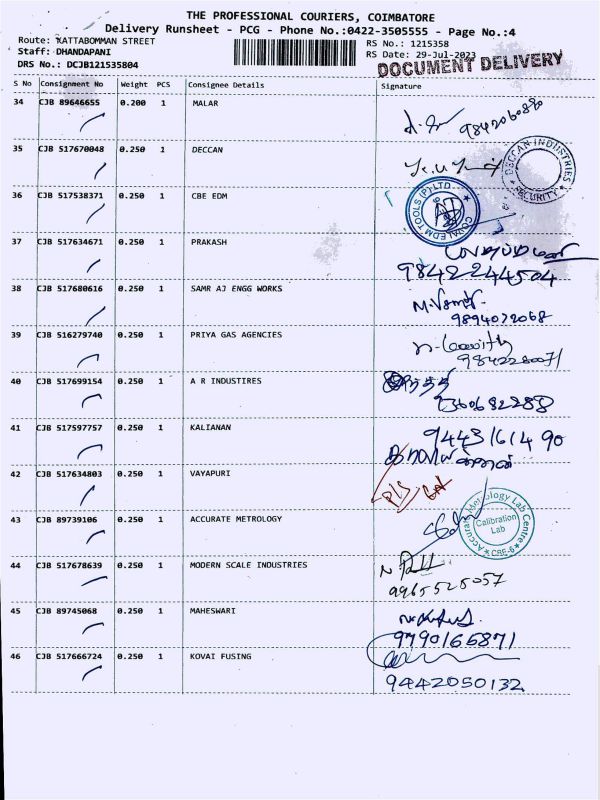 THE PROFESSIONAL COURIERS, COIMBATORE
Delivery Runsheet - PCG - Phone No.:0422-3505555 - Page No.:4
Route: KATTABOMMAN STREET
Staff: DHANDAPANI
DRS No.: DCJB121535804
RS No.: 1215358
RS Date: 29-Jul-2023
DOCUMENT DELIVERY
S No Consignment No Weight PCS Consignee Details Signature
34 CJB 89646655 0.200 1 MALAR
35 CJB 517670048 0.250 1 DECCAN
DECCAN INDUSTRIES
SECURITY
36 CJB 517538371 0.250 1 CBE EDM
EDM TOOLS (P) LTD
37 CJB 517634671 0.250 1 PRAKASH
9842244504
38 CJB 517680616 0.250 1 SAMR AJ ENGG WORKS
9894072068
39 CJB 516279740 0.250 1 PRIYA GAS AGENCIES
40 CJB 517699154 0.250 1 A R INDUSTIRES
41 CJB 517597757 0.250 1 KALIANAN
9443161490
42 CJB 517634803 0.250 1 VAYAPURI
43 CJB 89739106 0.250 1 ACCURATE METROLOGY
Accurate Metrology Lab Centre
Calibration
Lab
CBE-6
44 CJB 517678639 0.250 1 MODERN SCALE INDUSTRIES
9965525057
45 CJB 89745068 0.250 1 MAHESWARI
9790165871
46 CJB 517666724 0.250 1 KOVAI FUSING
9442050132